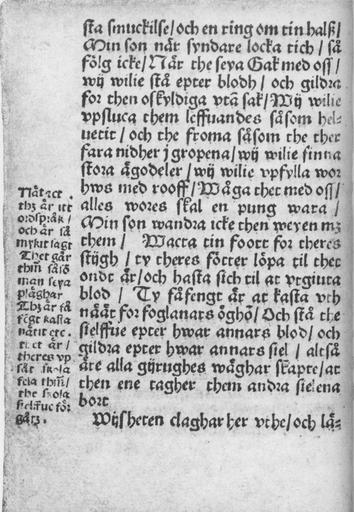 sta smuckilse/och en ring om tin halß/
Min son när syndare locka tich/så
fölg icke/När the seya Gak med oss/
wij wilie stå epter blodh/och gildra
for then oskyldiga vtå sak/Wij wilie
vpsluca them leffuandes såsom hel-
uetit/och the froma såsom the ther
fara nidher j gropena/wij wilie finna
stora ägodeler/wij wilie vpfylla wor
hws med rooff/Wåga thet med oss/
alles wores skal en pung wara/
Min son wandra icke then weyen mz
them/ Wacta tin foott for theres
stijgh/ty theres fötter löpa til thet
ondt är/och hasta sich til at vtgiuta
blod/Ty fåfengt är at kasta vth
näät for foglanars öghō/Och stå the
sielffue epter hwar annars blod/och
gildra epter hwar annars siel/altså
äre alla gijrughes wäghar skapte/at
then ene tagher them andra sielena
bort
Wijsheten claghar her vthe/och lä-
Nät etc.
thz är itt
ordspråk/
och är så
mykit sagt
Thet går
thm såsō
man seya
plåghar
Thz är få
fēgt kasta
nätit etc.
theres vp
såt skola
fela thm/
the skola
sielffue för
gåtz.